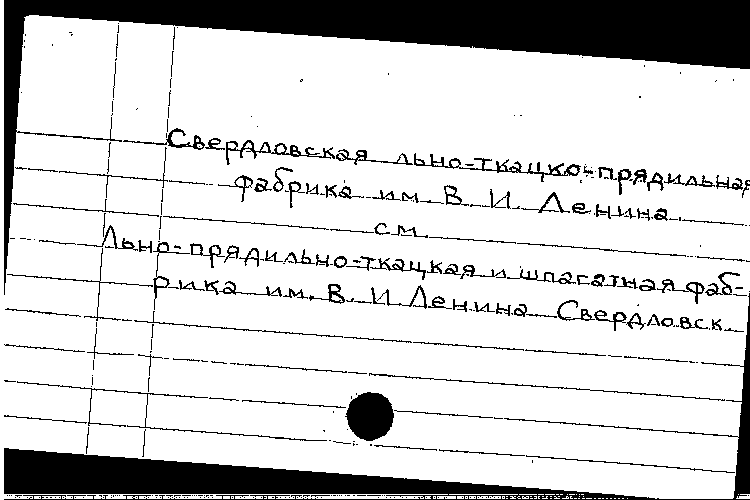 Свердловская льно-ткацко-прядильная
фабрика им. В. И. Ленина.
см.
Льно-прядильно-ткацкая и шпагатная фаб-
рика им. В. И. Ленина. Свердловск.